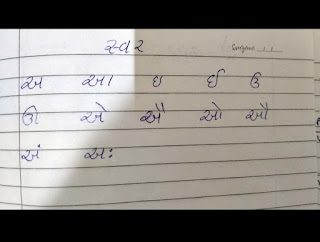 સ્વર
અ આ ઇ ઈ ઉ
ઊ એ ઐ ઓ ઔ
અં અઃ